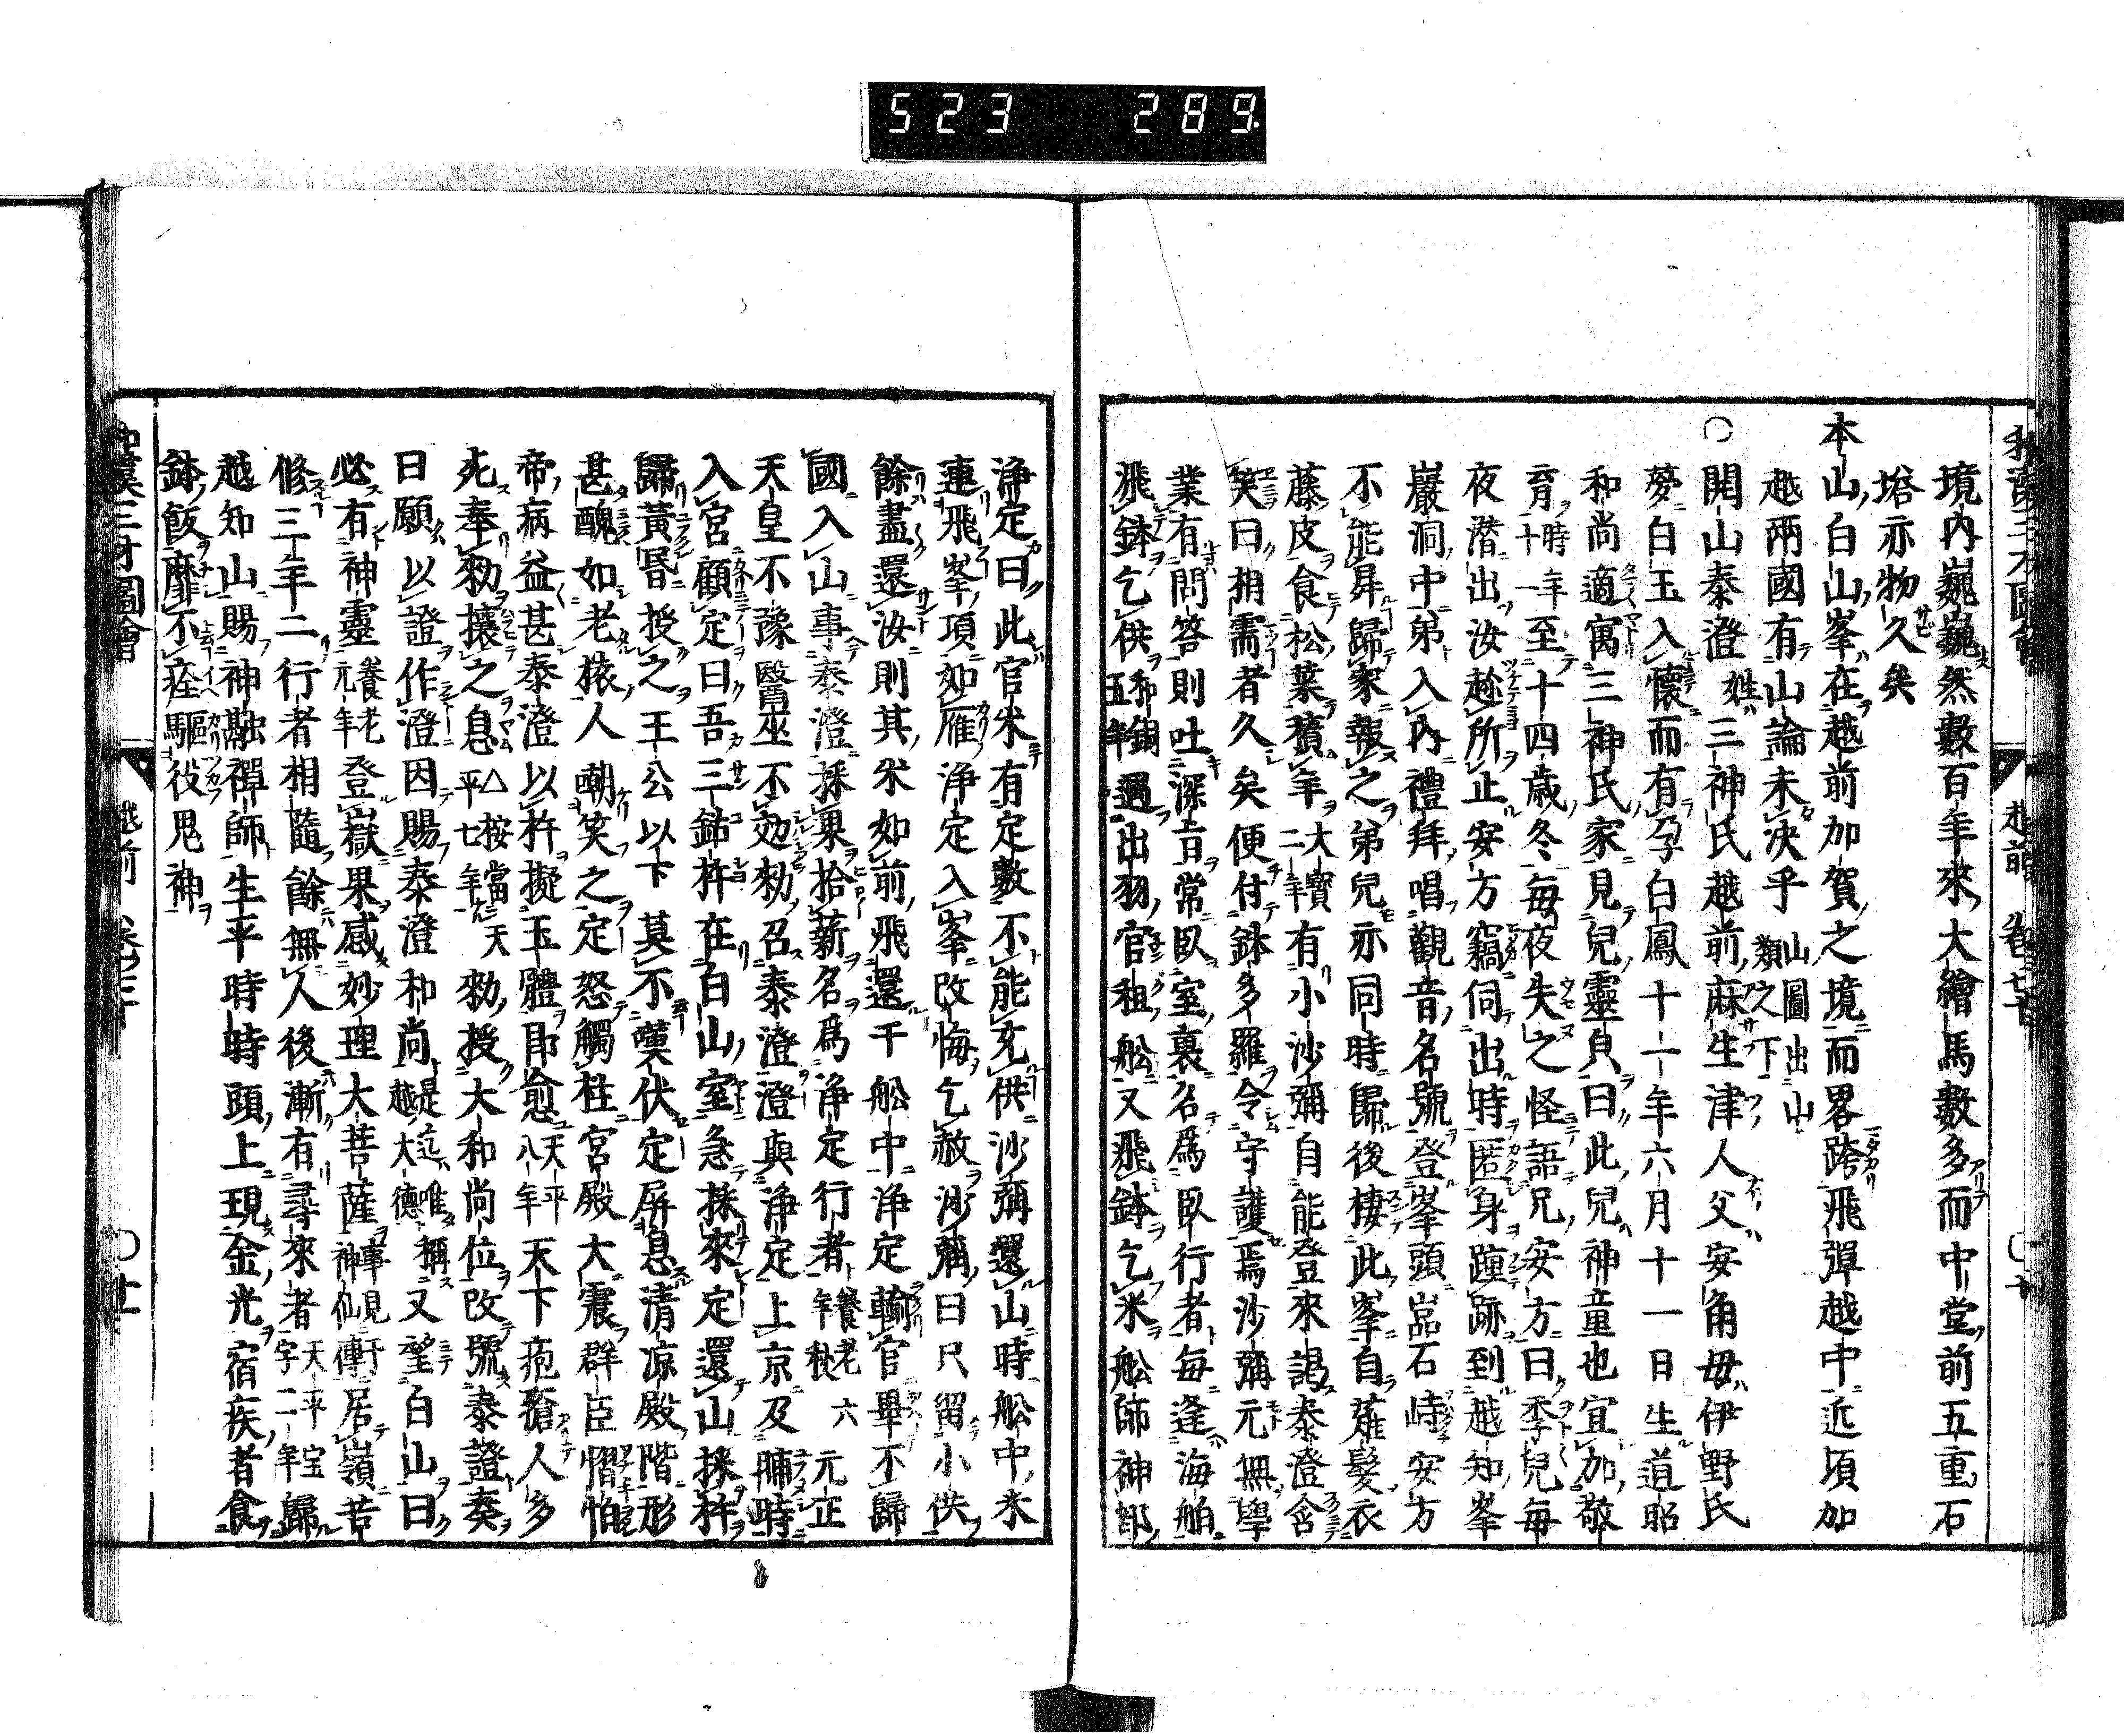 523 289
境内巍巍然數百年來大繪馬數多而中堂前五重石
塔亦物久矣
本山白山峯在越前加賀之境而畧跨飛彈越中近頃加
越兩國有山論未决乎 山圖出山類之下
○開山泰澄 姓三神氏越前麻生津人父安角母伊野氏
夢白玉入懷而有孕白鳳十一年六月十一日生道昭
和尚適寓三神氏家見兒靈貞曰此兒神童也宜加敬
育 時年十一 至十四歳冬毎夜失之怪語兄安方曰季兒毎
夜潜出汝趂所止安方竊伺出時匿身踵跡到越知峯
巖洞中弟入内禮拜唱觀音名號登峯頭嵓石峙安方
不能昇歸家報之弟兒亦同時歸後棲此峯自薙髮衣
藤皮食松葉積年 大寶二年 有小沙彌自能登來謁泰澄含
笑曰相需者久矣便付鉢多羅令守護焉沙彌元無學
業有問答則吐深旨常臥室裏名爲臥行者毎逢海舶
飛鉢乞供 和銅五年 過出羽官租舩又飛鉢乞米舩師神部
浄定曰此官米有定數不能充供沙彌還山時舩中米
連飛峯頂如雁浄定入峯改悔乞赦沙彌曰只留小供
餘盡還汝則其米如前飛還干舩中浄定輸官畢不歸
國入山事泰澄採果拾薪名爲浄定行者 養老六年秋 元正
天皇不豫醫巫不効勅召泰澄澄與浄定上京及晡時
入宮顧定曰吾三鈷杵在白山室急採來定還山採杵
歸黃昏授之王公以下莫不嘆伏定屏息清凉殿階形
甚醜如老猿人嘲笑之定怒觸柱宮殿大震群臣慴怕
帝病益甚泰澄以杵擬玉體即愈 天平八年 天下疱瘡人多
死奉勅攘之息 △按當天平七年 勅授大和尚位改號泰證奏
曰願以證作澄因賜泰澄和尚 是迄唯稱越大德 又望白山曰
必有神靈 養老元年 登嶽果感妙理大菩薩 事見于神仙傳 居嶺苦
修三年二行者相隨餘無人後漸有尋來者 天平宝字二年 歸
越知山賜神融禪師生平時時頭上現金光宿疾者食
鉢飯靡不痊驅役鬼神